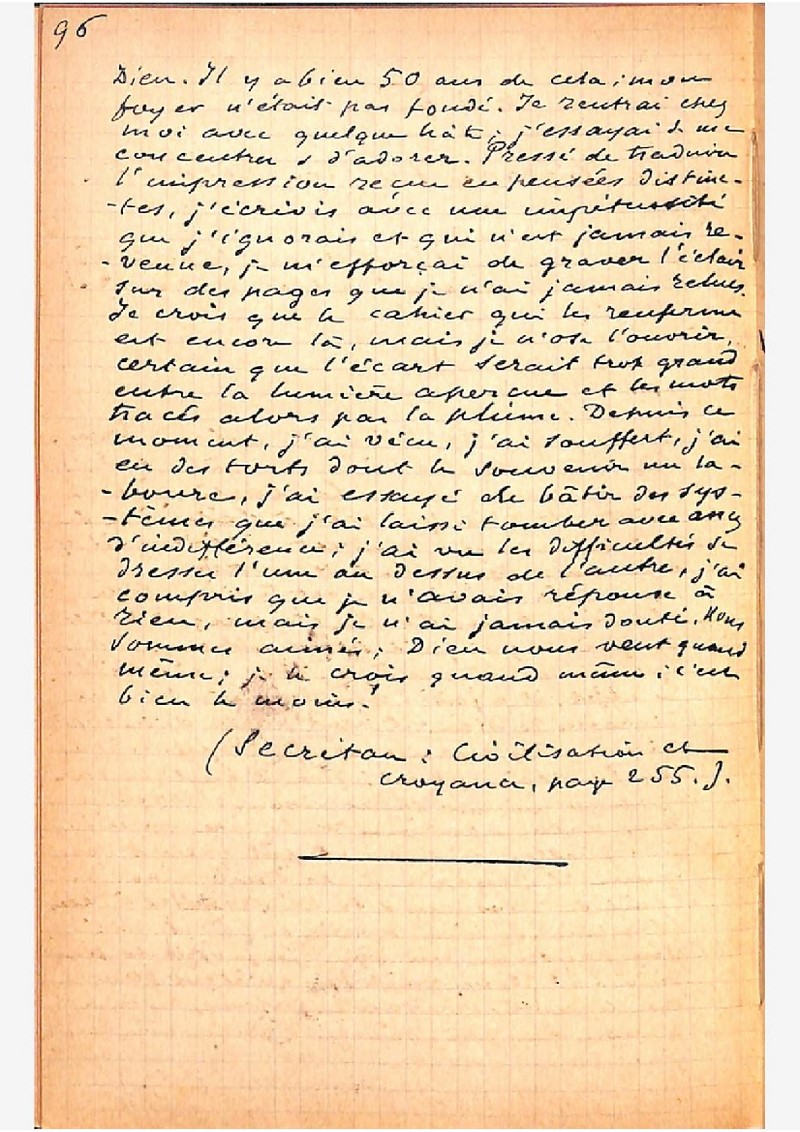 96
Dieu. Il y a bien 50 ans de cela ; mon
foyer n'était pas fondé. Je rentrai chez
moi avec quelque hâte ; j'essayai de me
concentrer & d'adorer. Pressé de traduire
l'impression reçue en pensées distinc-
-tes, j'écrivis avec une impétuosité
que j'ignorais et qui n'est jamais re-
-venue, je m'efforçai de graver l'éclair
sur des pages que je n'ai jamais relues.
Je crois que le cahier qui les renferme
est encore là, mais je n'ose l'ouvrir,
certain que l'écart serait trop grand
entre la lumière aperçue et les mots
tracés alors par la plume. Depuis ce
moment, j'ai vécu, j'ai souffert, j'ai
eu des torts dont le souvenir me la-
-boure, j'ai essayé de bâtir des sys-
-tèmes que j'ai laissé tomber avec assez
d'indifférence ; j'ai vu les difficultés se
dresser l'une au dessus de l'autre, j'ai
compris que je n'avais réponse à
rien, mais je n'ai jamais douté. Nous
sommes aimés ; Dieu nous veut quand
même ; je le crois quand même ; c'est
bien le moins !
(Secrétan : Civilisation et
croyance, page 255.).